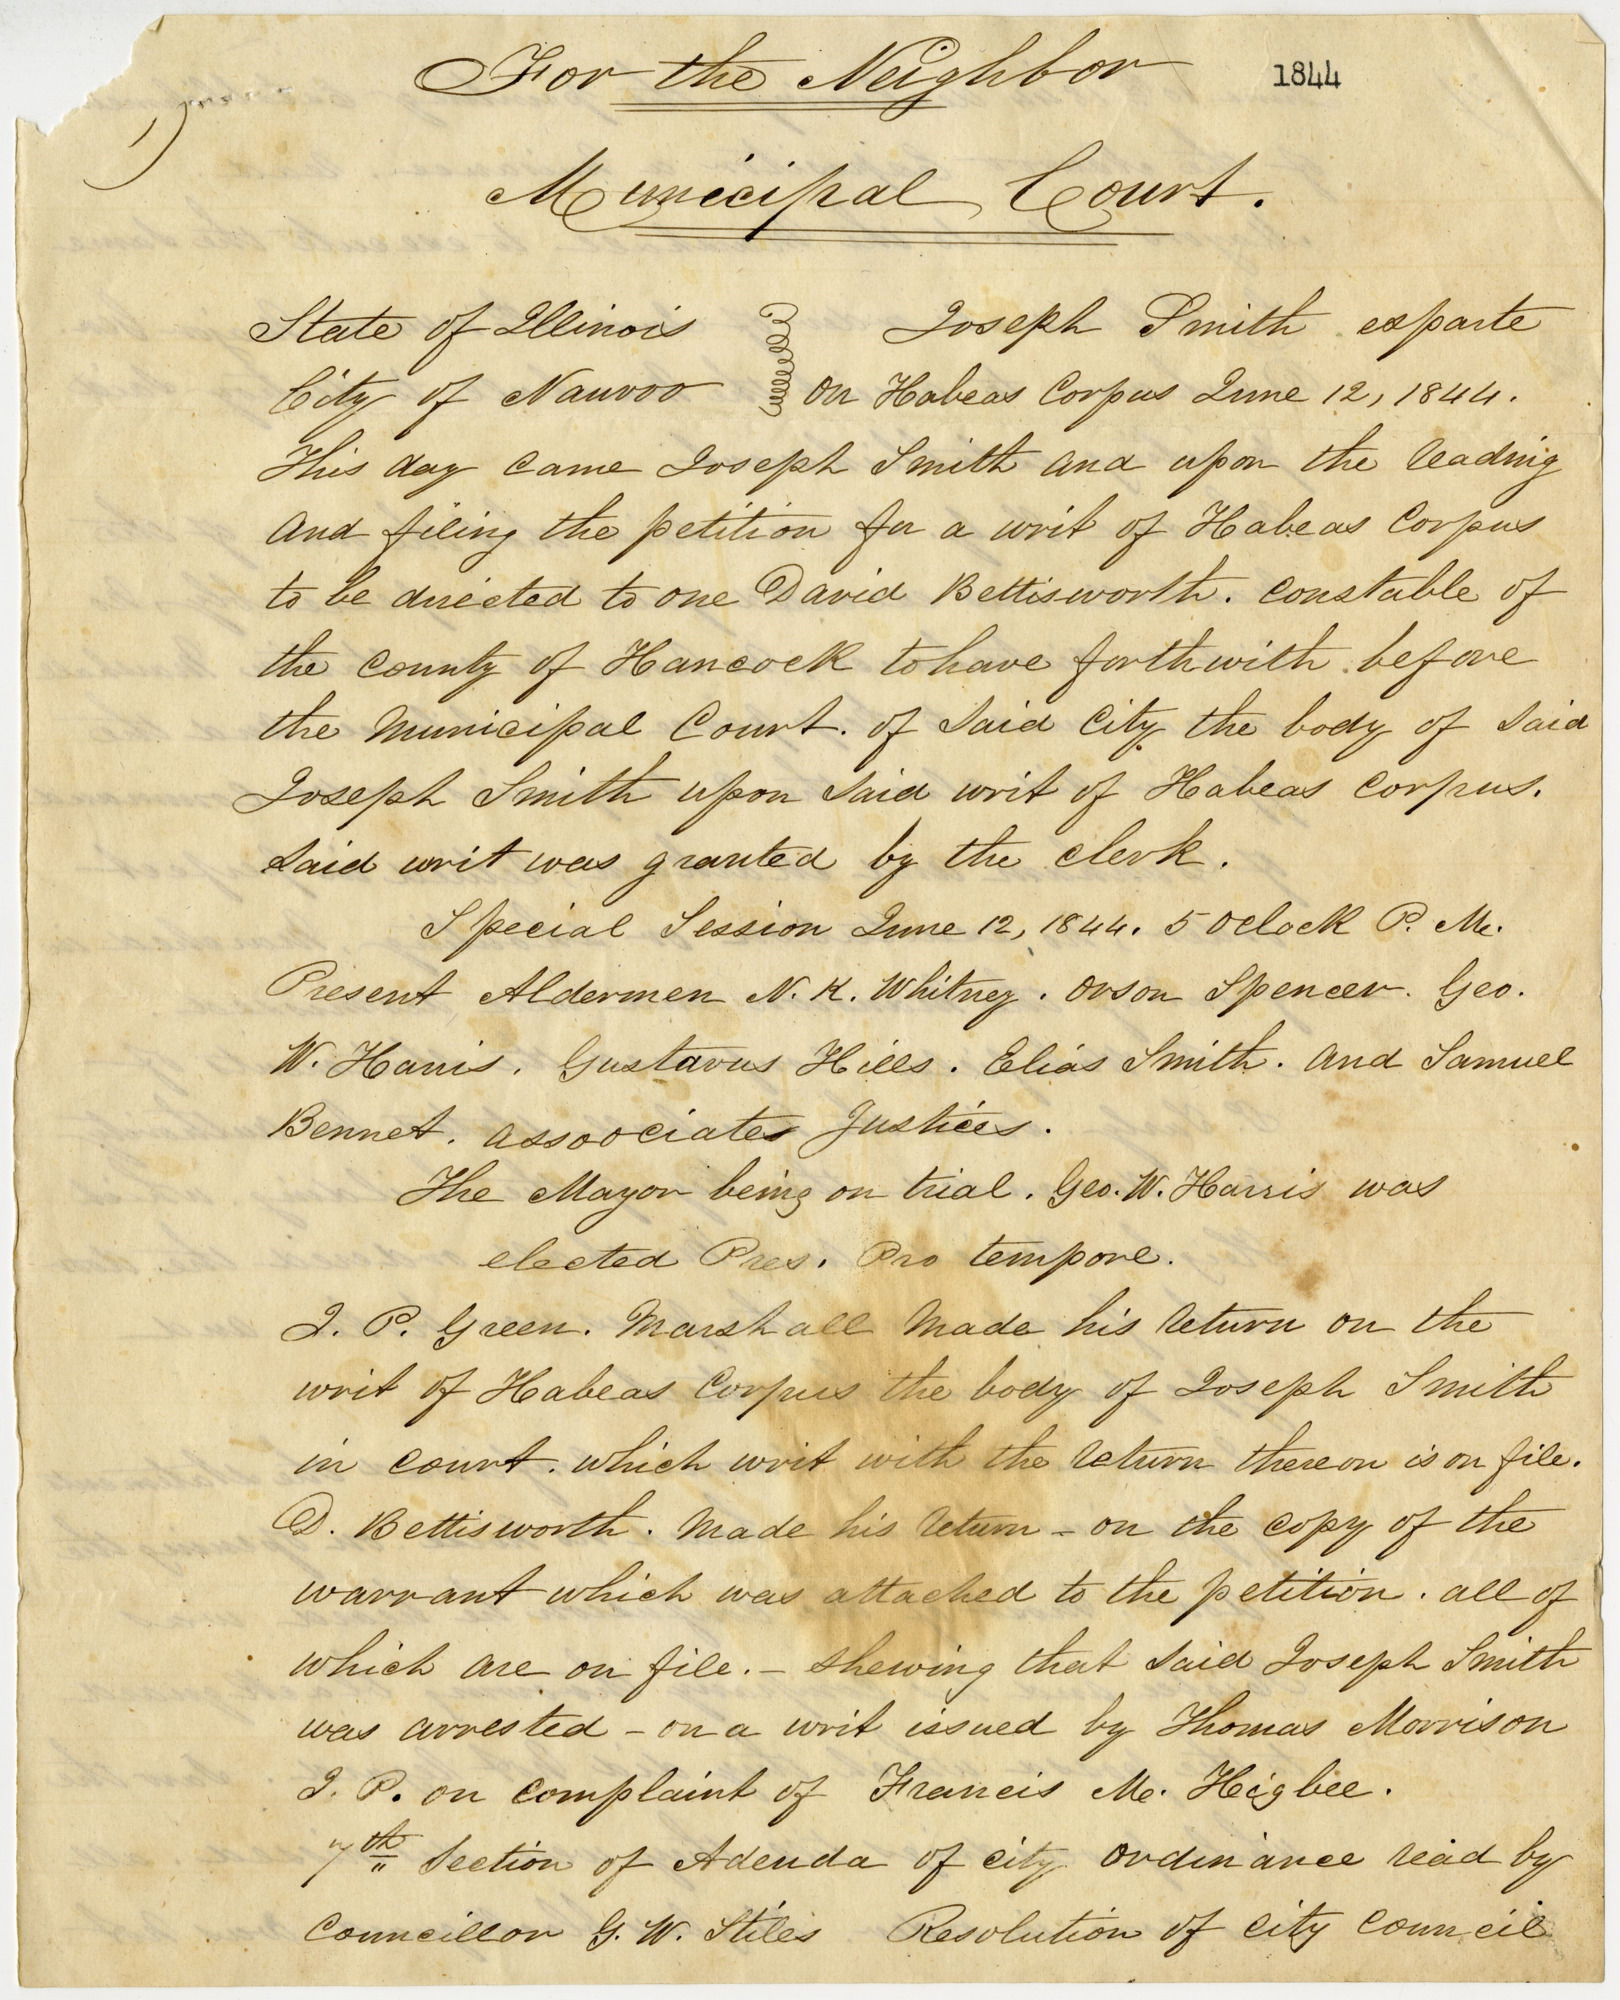 For the Neighbor 1844
1)
Municipal Court.
State of Illinois Joseph Smith exparte
City of Nauvoo on Habeas Corpus June 12, 1844.
This day came Joseph Smith and upon the reading
and filing the petition for a writ of Habeas Corpus
to be directed to one David Bettisworth. constable of
the county of Hancock to have forthwith before
the Municipal Court. of said City the body of said
Joseph Smith upon said writ of Habeas corpus.
said writ was granted by the clerk.
Special Session June 12, 1844. 5 oclock P. M.
Present Aldermen N. K. Whitney. Orson Spencer. Geo.
W. Harris. Gustavus Hills. Elias Smith. and Samuel
Bennet. assoociates Justices.
The Mayor being on trial. Geo. W. Harris was
elected Pres. Pro tempore.
J. P. Green. Marshall made his return on the
writ of Habeas Corpus the body of Joseph Smith
in court. which writ with the return thereon is on file.
D. Bettisworth. made his return - on the copy of the
warrant which was attached to the petition. all of
which are on file. - shewing that said Joseph Smith
was arrested - on a writ issued by Thomas Morrison
J. P. on complaint of Francis M. Higbee.
7th Section of Adenda of city ordinance read by
Councillor G. W. Stiles Resolution of city council